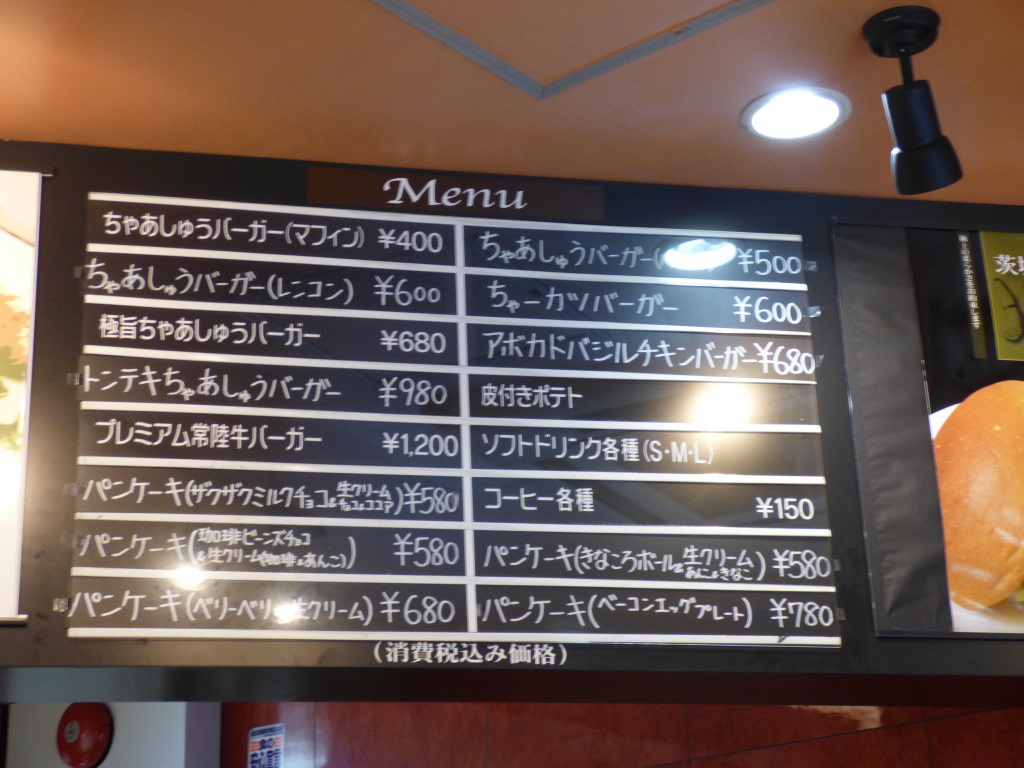 Menu
ちゃあしゅうバーガー(マフィン) ¥400
ちゃあしゅうバーガー(レンコン) ¥600
極旨ちゃあしゅうバーガー ¥680
トンテキちゃあしゅうバーガー ¥980
プレミアム常陸牛バーガー ¥1,200
パンケーキ(ザクザクミルクチョコ&生クリームチョコ&ココア) ¥580
パンケーキ(珈琲ビーンズチョコ
&生クリーム(珈琲&あんこ)) ¥580
パンケーキ(ベリーベリー生クリーム) ¥680
ちゃあしゅうバーガー( ¥500
ちゃーカツバーガー ¥600
アボカドバジルチキンバーガー ¥680
皮付きポテト
ソフトドリンク各種(S・M・L)
コーヒー各種 ¥150
パンケーキ(きなころボール&生クリームあんこ&きなこ) ¥580
パンケーキ(ベーコンエッグプレート) ¥780
(消費税込み価格)